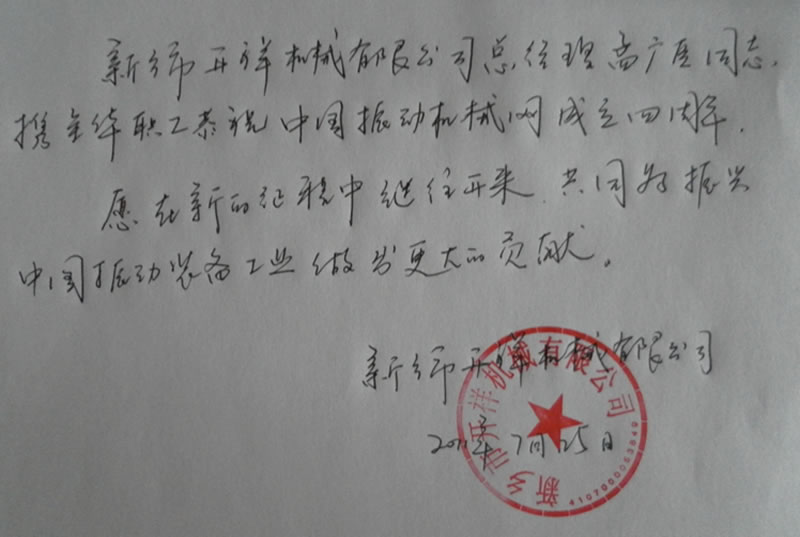 新乡市开祥机械有限公司总经理高广臣同志,
携全体职工恭祝中国振动机械网成立四周年.
愿在新的征程中继往开来.共同为振兴
中国振动装备工业做出更大的贡献。
新乡市开祥机械有限公司
7月25日
新乡市开祥机械有限公司
4107000053849